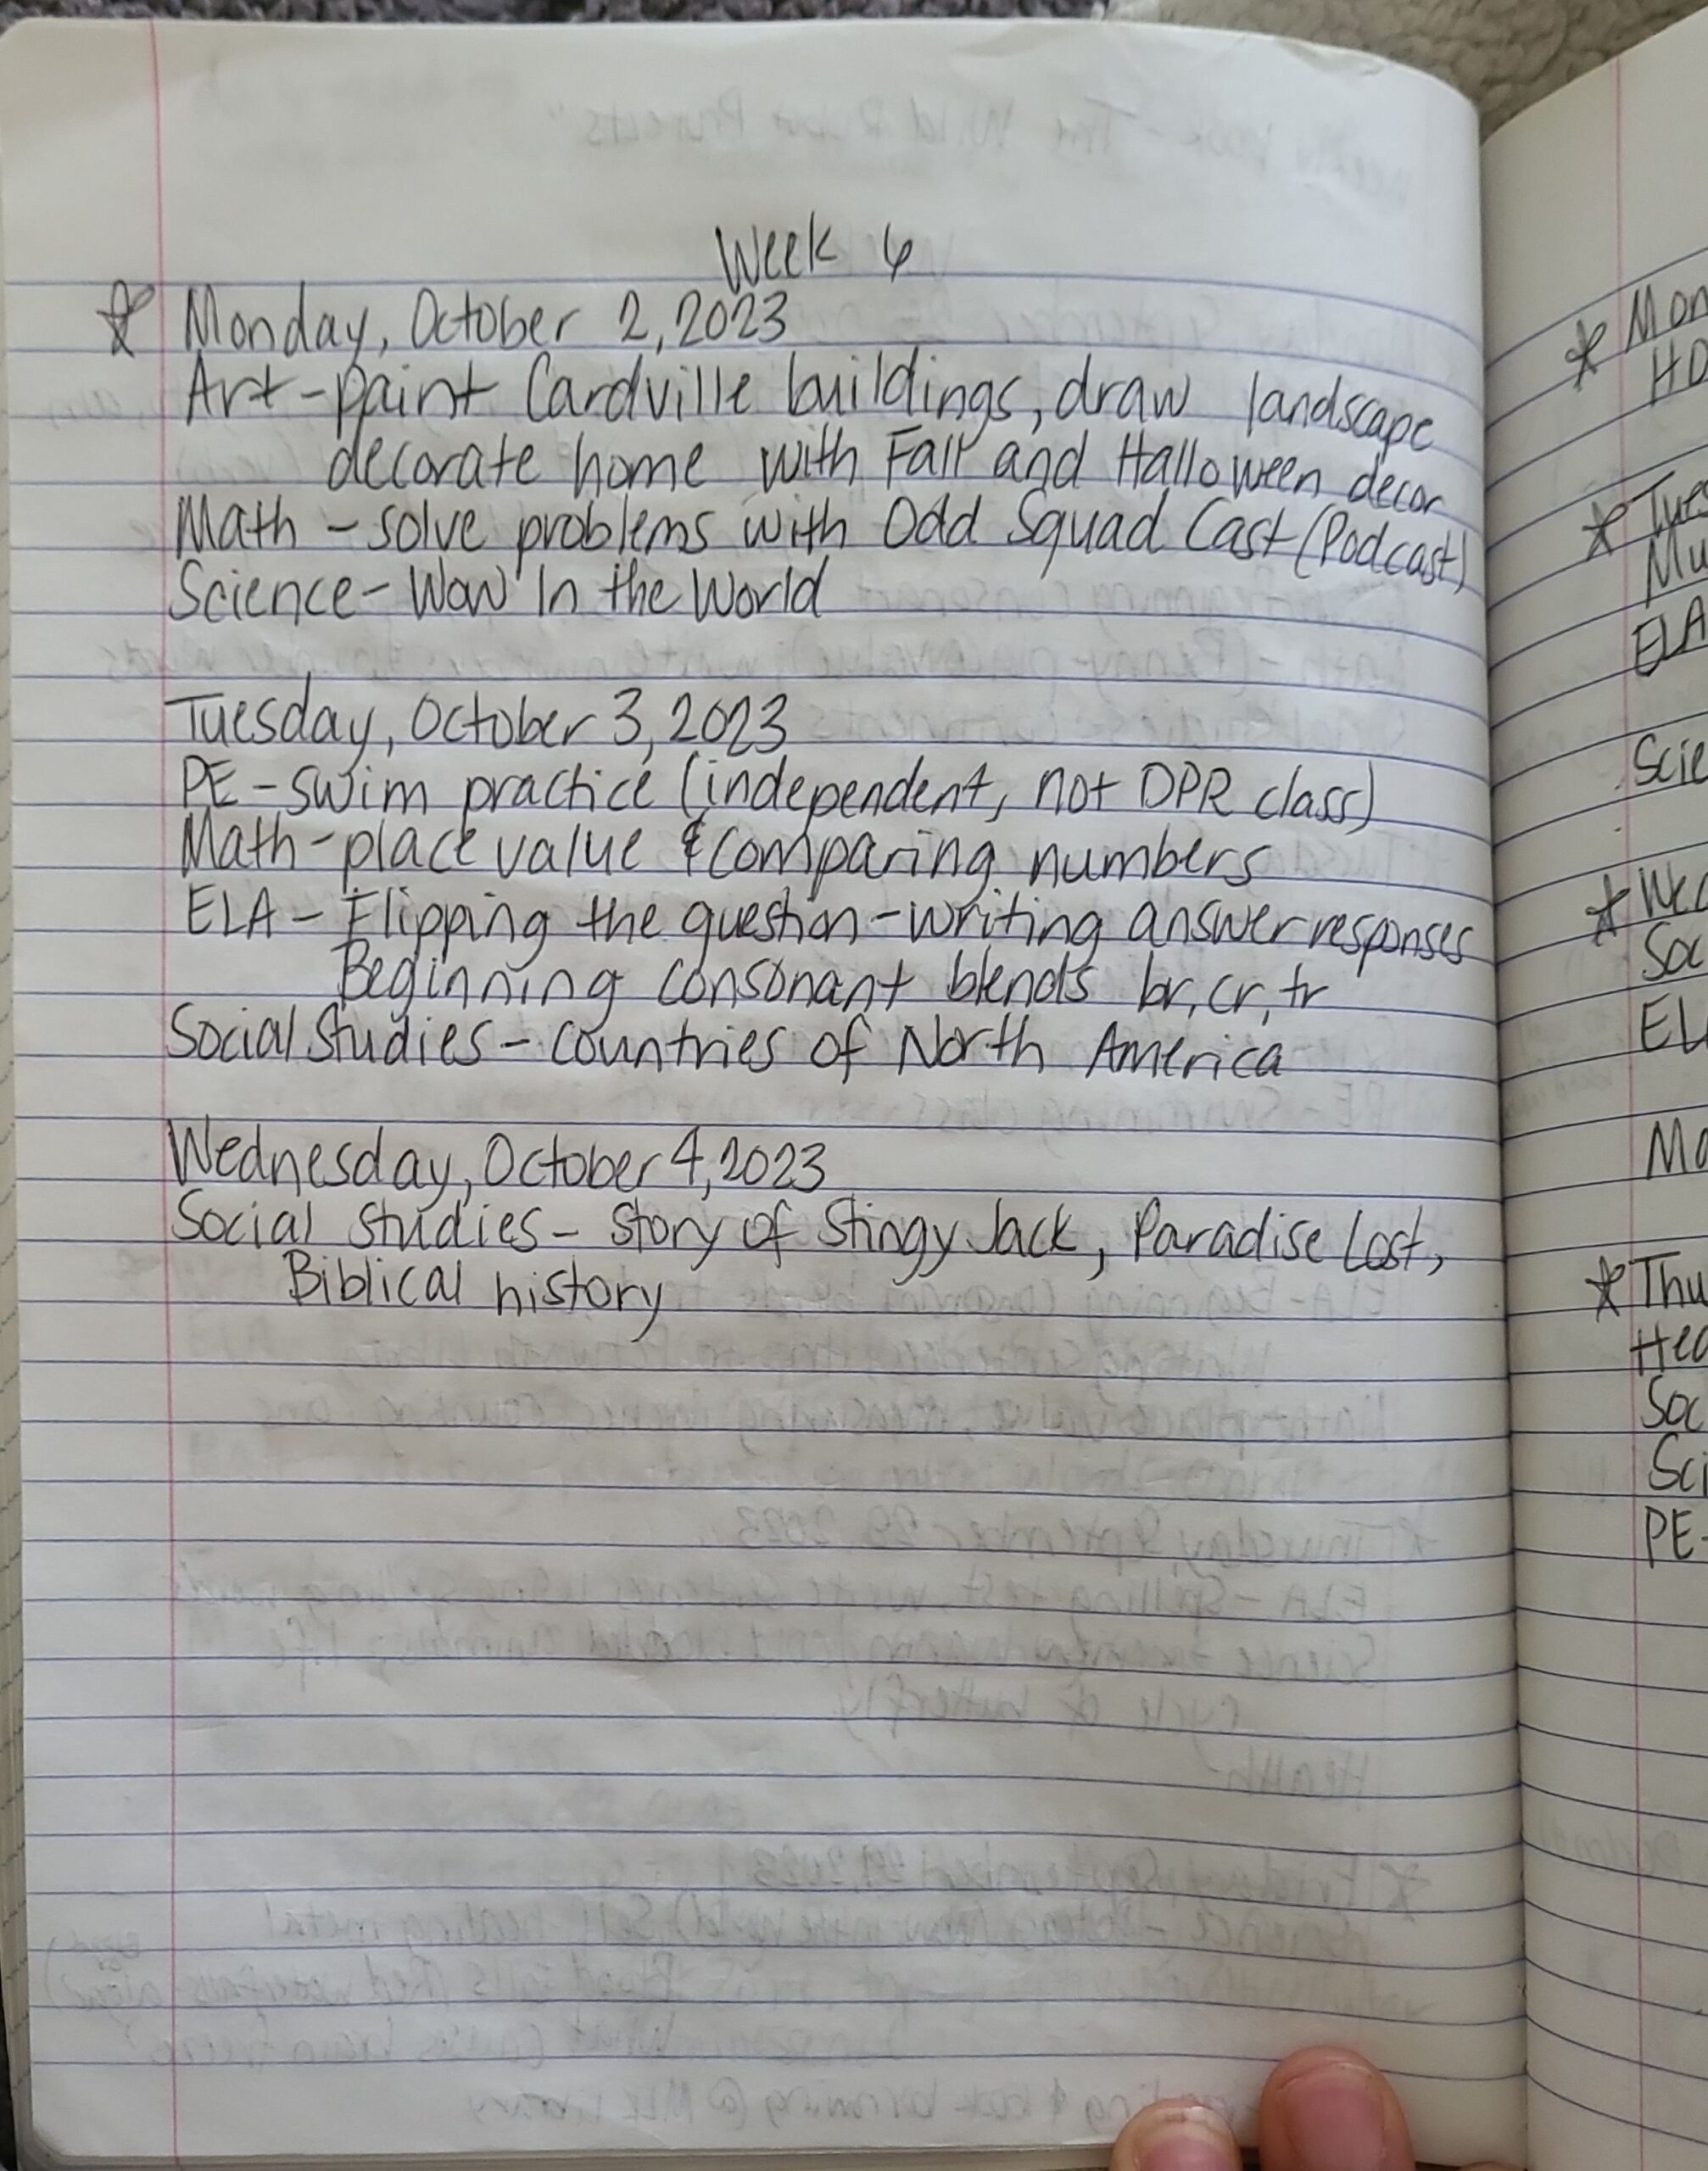 Week 6
☆ Monday, October 2, 2023
Art - paint Cardville buildings, draw landscape
decorate home with Fall and Halloween decor
Math - solve problems with Odd Squad Cast (Podcast)
Science - Wow In the World
Tuesday, October 3, 2023
PE - swim practice (independent, not DPR class)
Math - place value & comparing numbers
ELA - Flipping the question - writing answer responses
Beginning consonant blends br, cr, tr
Social Studies - Countries of North America
Wednesday, October 4, 2023
Social Studies - Story of Stingy Jack, Paradise Lost,
Biblical history
☆ Mon
HD
☆ Tues
Mu
ELA
Scie
☆ Wed
Soc
EL
Ma
☆ Thu
Hea
Soc
Sci
PE-